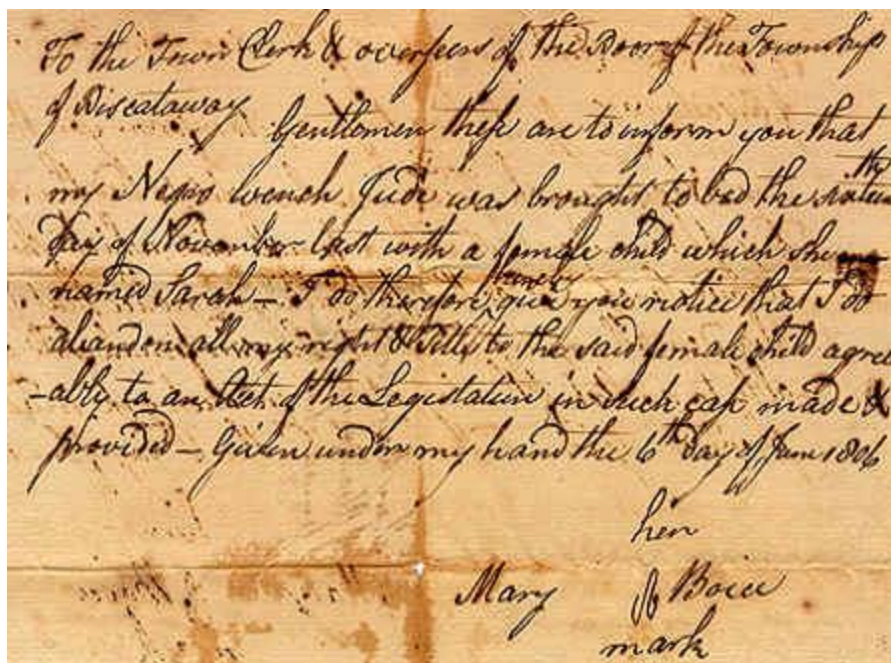 To the Town Clerk & overseers of the Poor of the Township
of Piscataway
Gentlemen these are to inform you that
my Negro wench Jude was brought to bed the sixteenth
day of November last with a female child which she
named Sarah – I do therefore hereby give you notice that I do
abandon all my right & Title to the said female child agree
-ably to an Act of the Legislature in such case made &
provided – Given under my hand the 6th day of June 1806
her
Mary Boice
mark